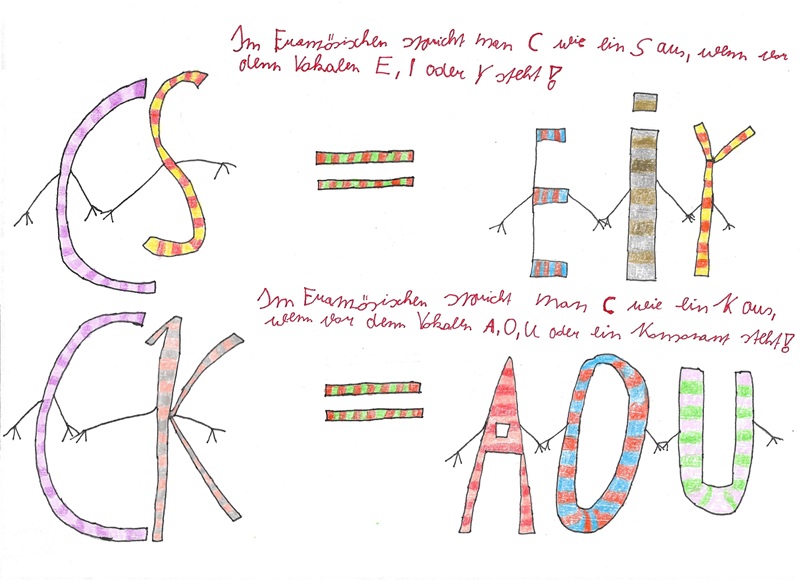 Im Französischen spricht man C wie ein S aus, wenn vor
denn Vokalen E, I oder Y steht!
C S = E I Y
Im Französischen spricht man C wie ein K aus,
wenn vor denn Vokalen A, O, U oder ein Konsonant steht!
C K = A O U